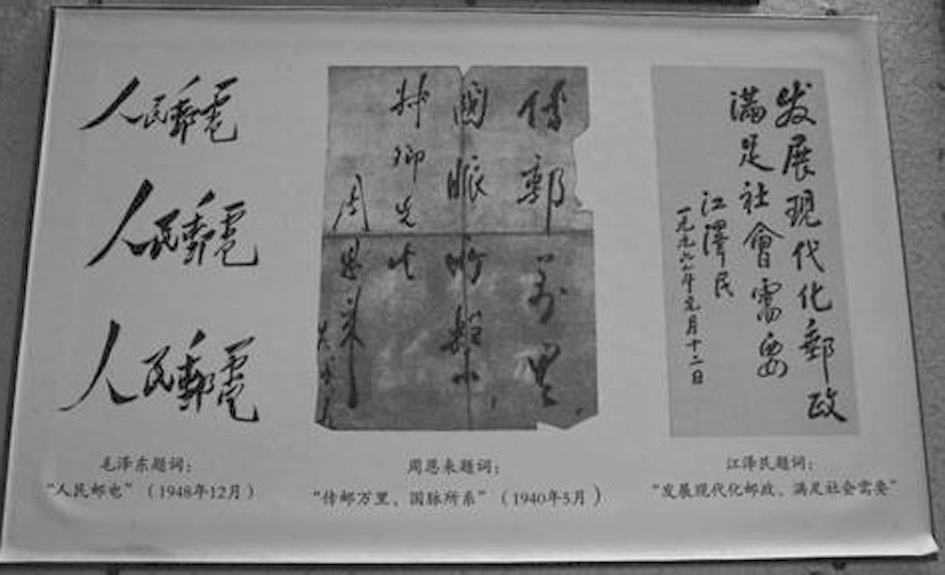 人民郵電
人民郵電
人民郵電
傳郵万里
國脈所繫
卿先生
周恩来
发展現代化郵政
滿足社會需要
江澤民
一九九六年元月十二日
毛泽东题词：
“人民邮电”（1948年12月）
周恩来题词：
“传邮万里、国脉所系”（1940年5月）
江泽民题词：
“发展现代化邮政、满足社会需要”